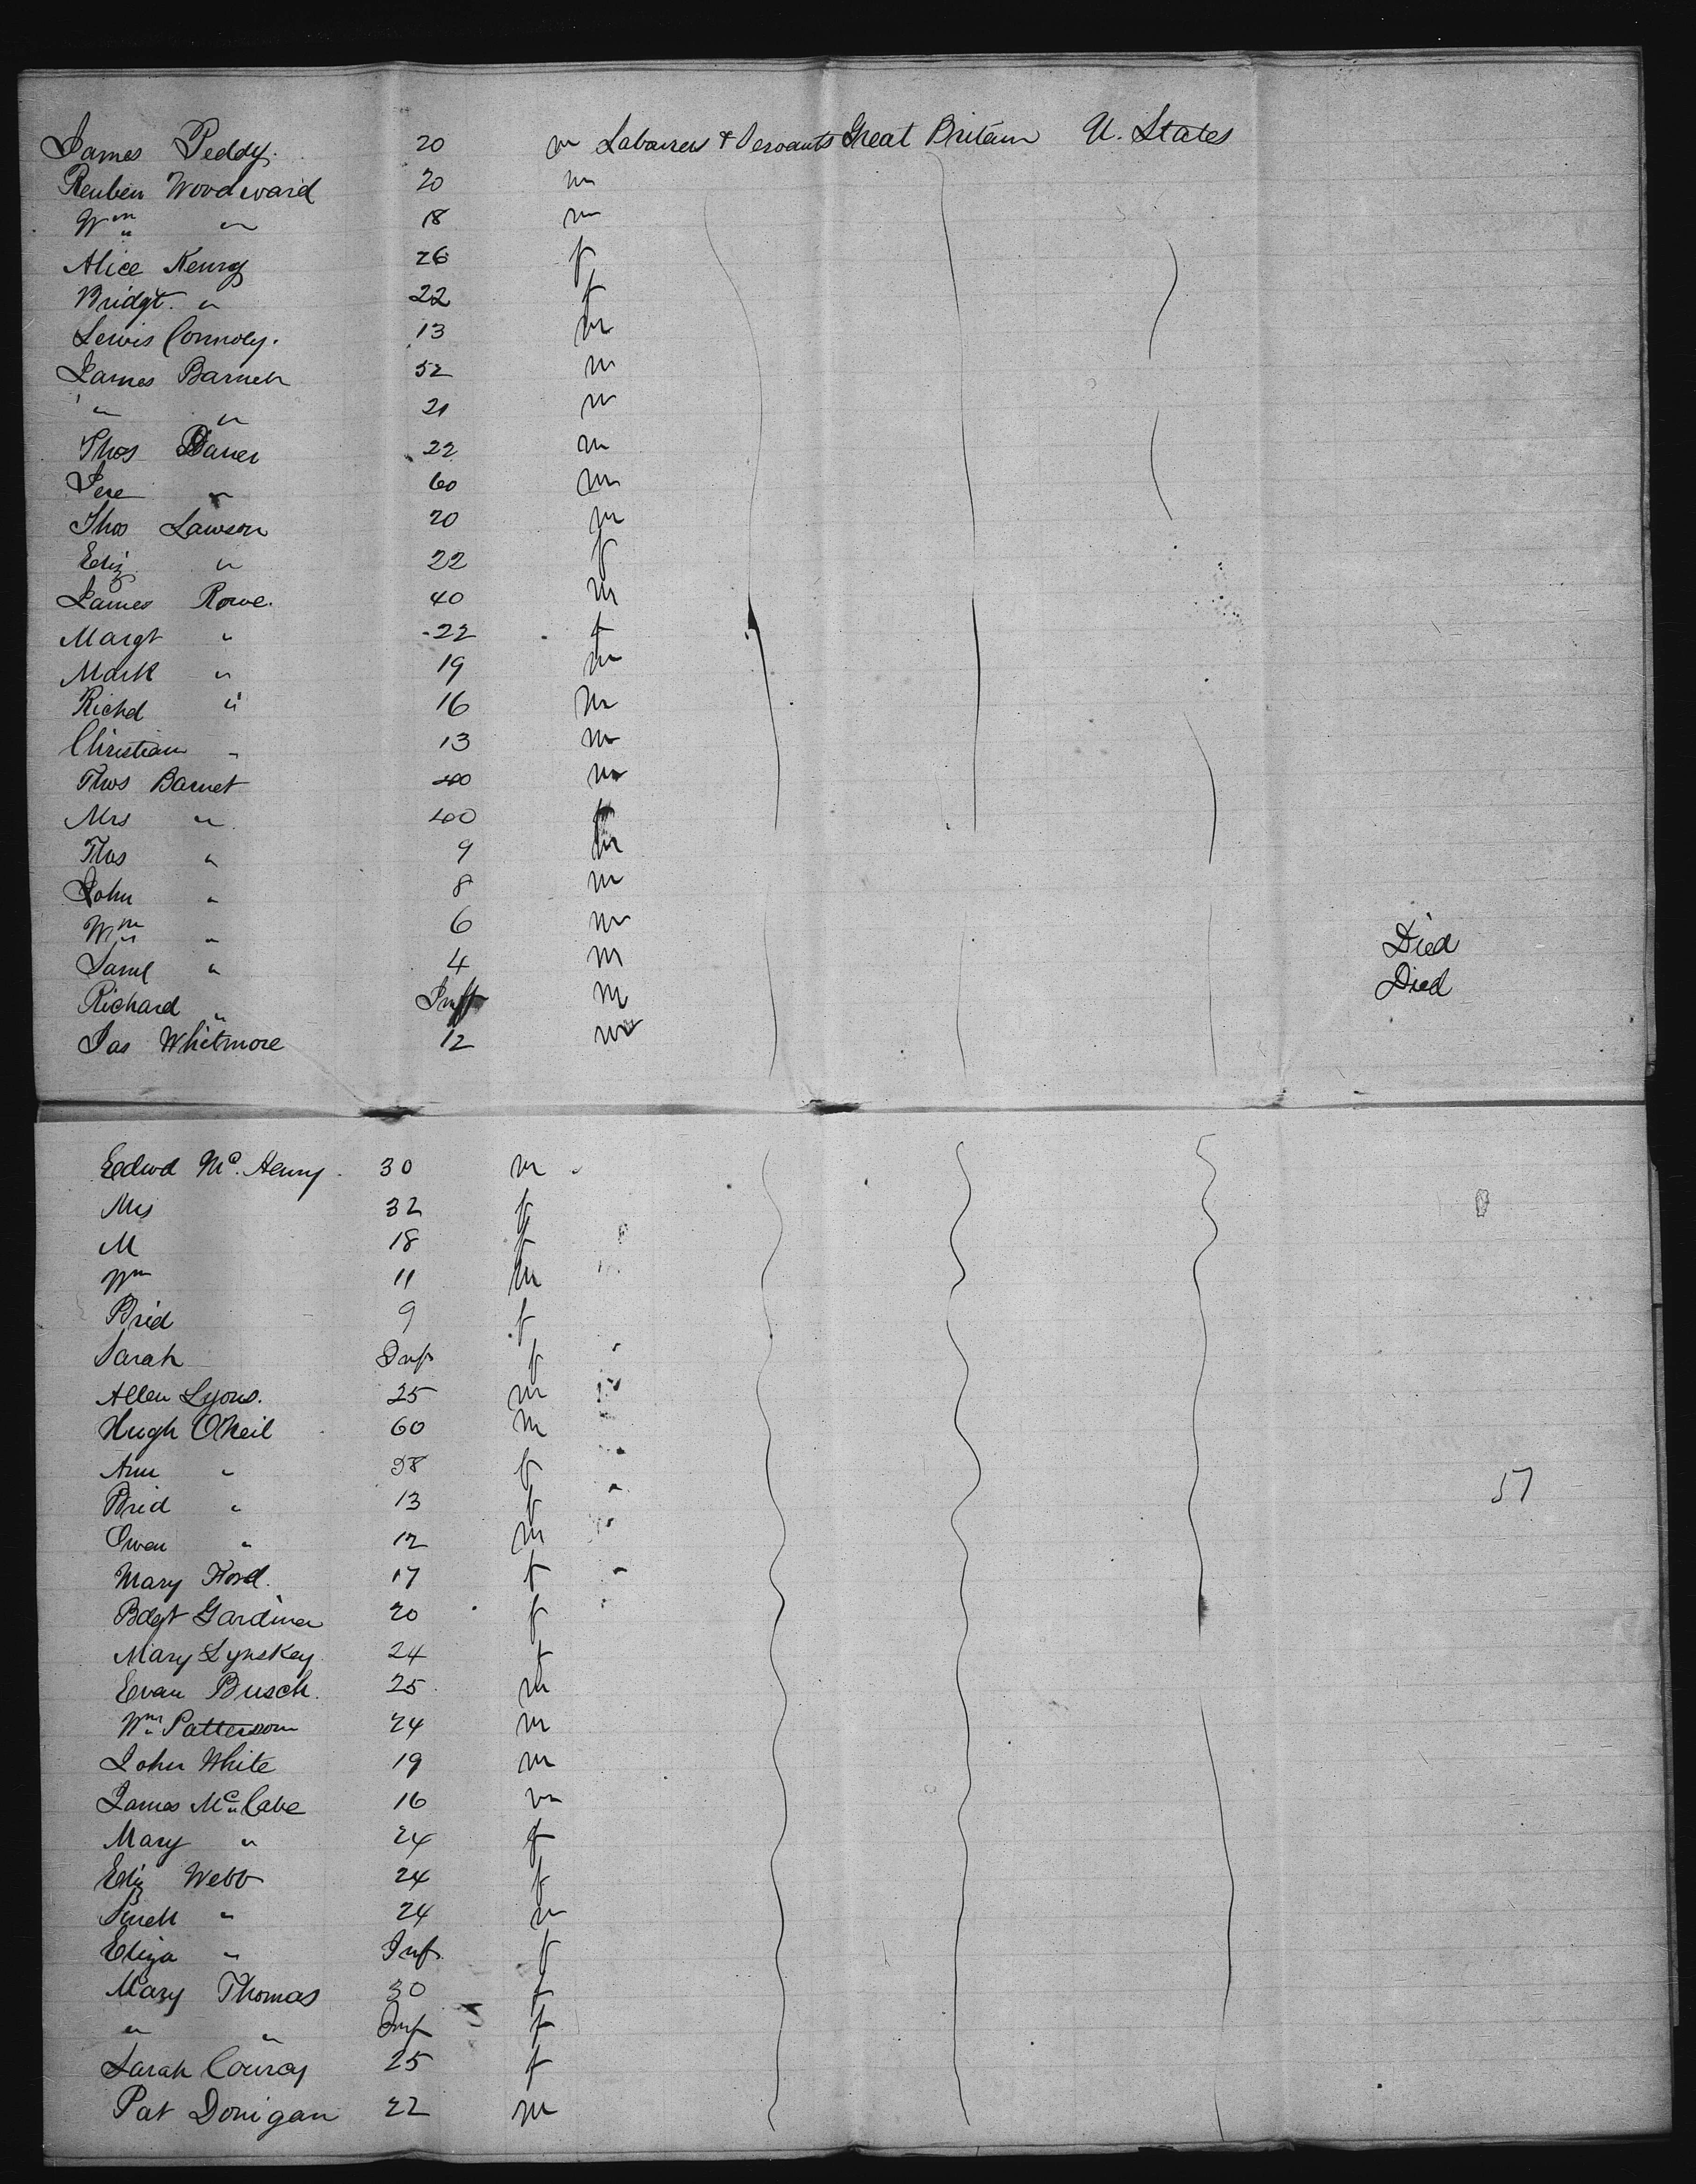 James Peddy. 20 m Labourers & Servants Great Britain U. States
Reuben Woodward 20 m
Wm " 18 m
Alice Kenny 26 f
Bridgt. " 22 f
Lewis Connoly. 13 m
James Barnett 52 m
" " 21 m
Thos 22 m
Jere " 60 m
Thos Lawson 20 m
Eliz " 22 f
James Rowe. 40 m
Margt " 22 f
Mark " 19 m
Richd " 16 m
Christian " 13 m
Thos Barnet 40 m
Mrs " 40 f
Thos " 9 m
John " 8 m
Wm " 6 m Died
Saml " 4 m Died
Richard " Inft m
Jas Whitmore 12 m
Edwd Mc. Henry. 30 m
Mrs 32 f
M 18 f
Wm 11 m
Brid 9 f
Sarah Inf f
Allen Lyons. 25 m
Hugh O'Neil 60 m
Ann " f 57
Brid " 13 f
Owen " 12 m
Mary Ford. 17 f
Bdgt Gardiner 20 f
Mary Lynskey 24 f
Evan Busch. 25 m
Wm Patterson 24 m
John White 19 m
James McCabe 16 m
Mary " 24 f
Eliz Webb 24 f
" 24 m
Eliza " Inf. f
Mary Thomas 30 f
" " Inf f
Sarah Conroy 25 f
Pat Donigan 22 m